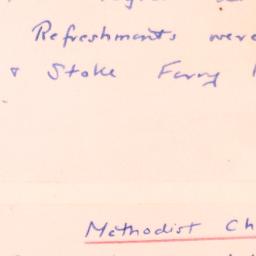 Refreshments were
& Stoke Ferry
Methodist Ch